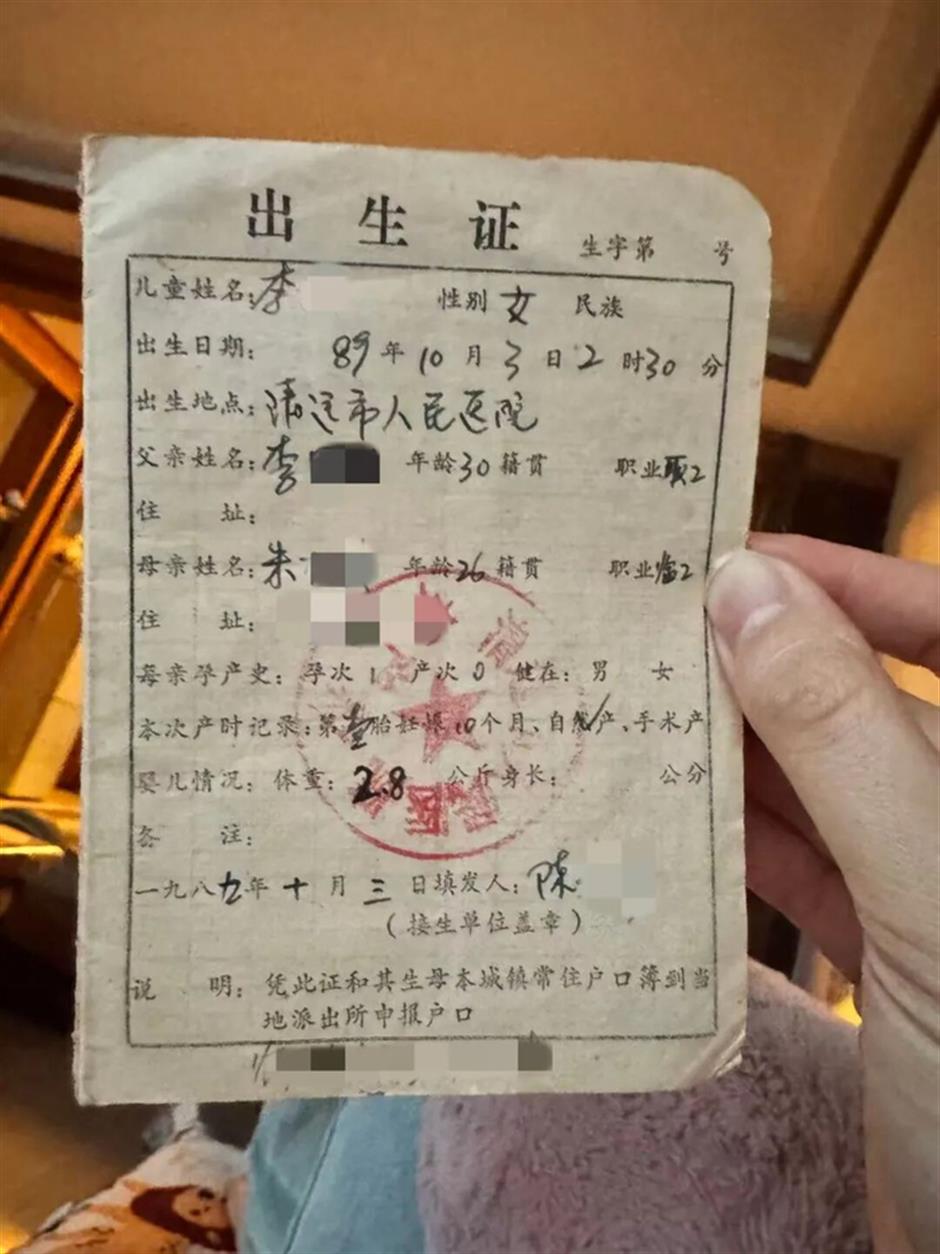 出生证
生字第 号
儿童姓名:李 性别女 民族
出生日期: 89年10月3日2时30分
出生地点:清远市人民医院
父亲姓名:李 年龄30籍贯 职业
住 址:
母亲姓名:朱 年龄26籍贯 职业临工
住 址:
母亲孕产史:孕次1 产次0 健在:男 女
本次产时记录:第壹胎妊娠10个月、自然产、手术产
婴儿情况:体重:2.8 公斤身长: 公分
备 注:
一九八九年十月三日填发人:陈
(接生单位盖章)
说 明:凭此证和其生母本城镇常住户口簿到当
地派出所申报户口